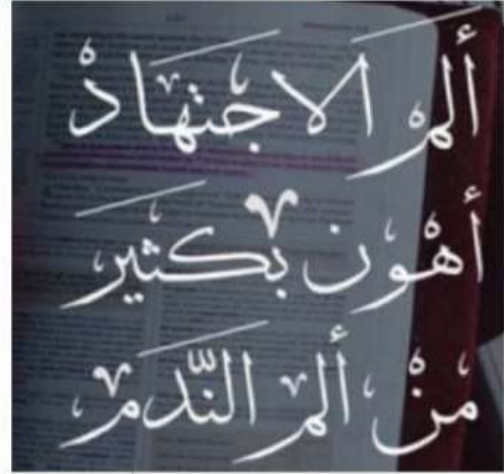 ألم الاجتهاد
أهون بكثير
من ألم الندم